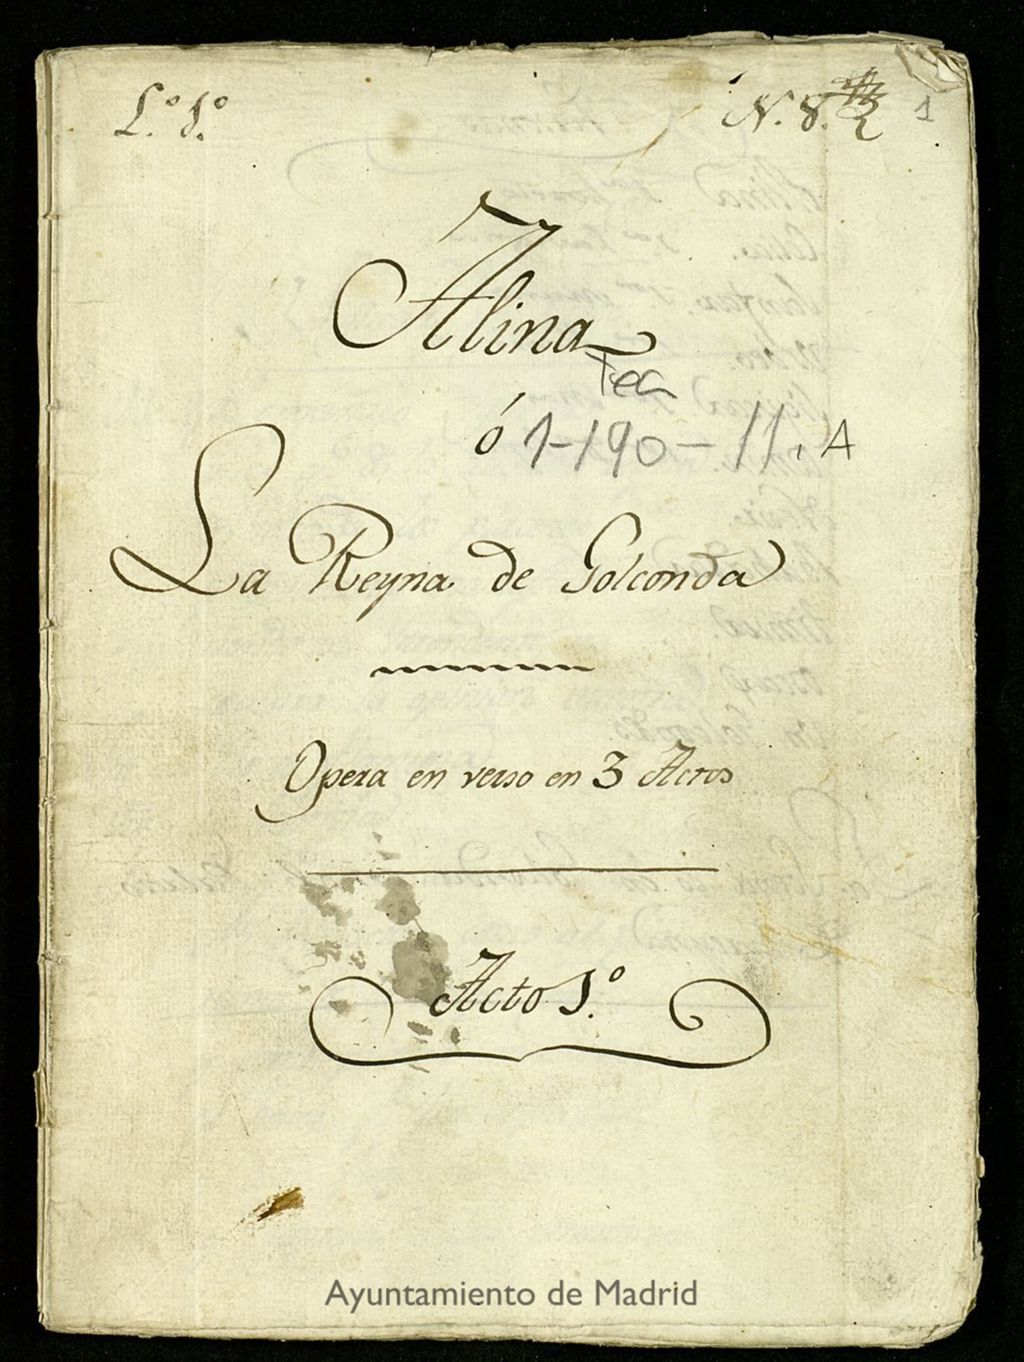 L.º 1.º
N. 8. 2 1
Alina
Tea
ó 1-190-11. A
La Reyna de Golconda
Opera en verso en 3 Actos
Acto 1.º
Ayuntamiento de Madrid